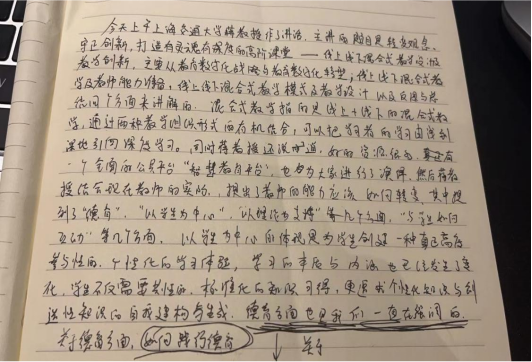 今天上午上海交通大学蒋教授作了讲话，主讲的题目是转变观念，
守正创新，打造有灵魂有深度的高阶课堂——线上线下混合式教学设计
教学创新，主要从教育数字化战略与教育数字化转型，线上线下混合式教
学及教师能力准备，线上线下混合式教学模式及教学设计以及应用与总
结四个方面来讲解的。混合式教学指的是线上+线下的混合式教
学，通过两种教学组织形式的有机结合，可以把学习者的学习由浅到
深地引向深度学习。同时蒋教授还说到道，好的资源很多，
一个全面的公共平台"智慧教育平台"，也为大家进行了演绎，然后蒋教
授结合现在教师的实际，提出了教师的能力应该如何转变，其中提
到了"德育"，"以学生为中心"，"以理论为支撑"等几个方面，"与学生如何
互动"等几个方面，以学生为中心的体现是为学生创设一种真正高度
参与性的、个性化的学习体验，学习的本质与内涵也已经发生了变
化，学生不仅需要共性的、标准化的知识习得，更追求个性化知识与创
造性知识的自我建构与生成，德育方面也是我们一直在强调的。
关于德育方面，如何践行德育 ↓ 关于